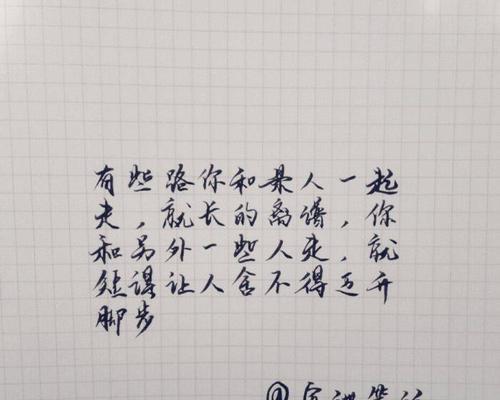 有些路你和某人一起
走，就长的离谱，你
和另外一些人走，就
短得让人舍不得迈开
脚步